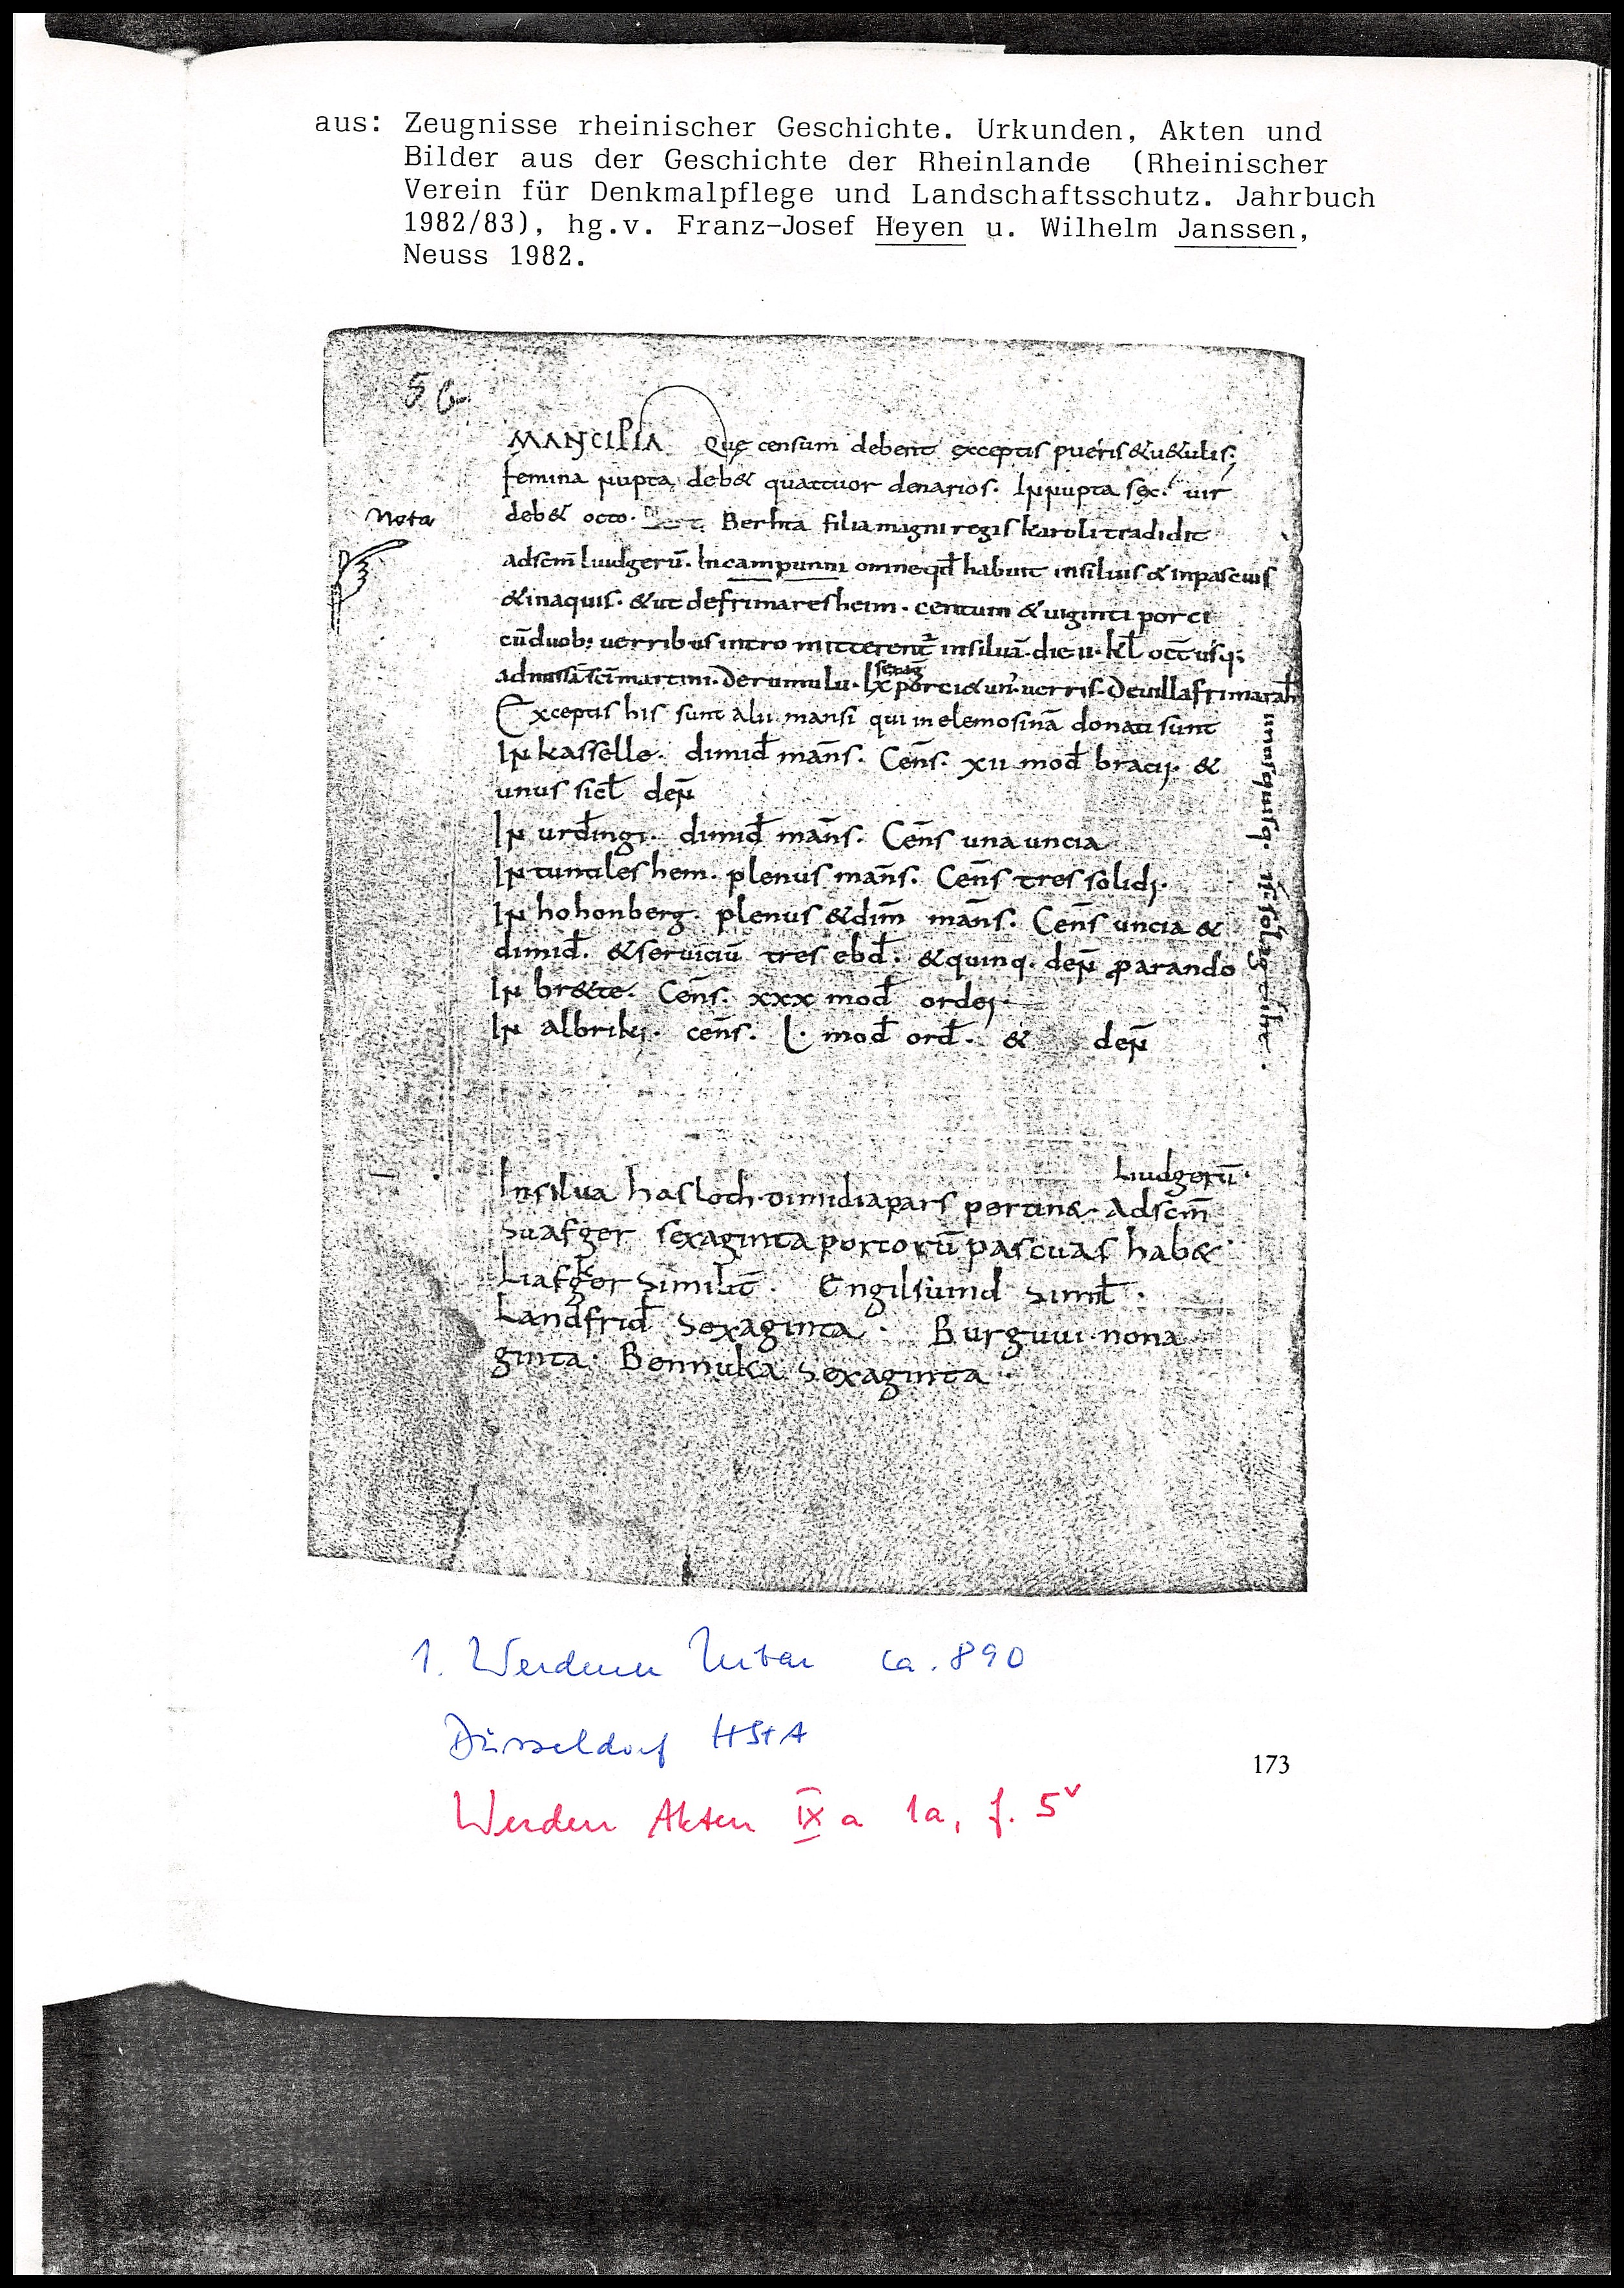 aus: Zeugnisse rheinischer Geschichte. Urkunden, Akten und
Bilder aus der Geschichte der Rheinlande (Rheinischer
Verein für Denkmalpflege und Landschaftsschutz. Jahrbuch
1982/83), hg.v. Franz-Josef Heyen u. Wilhelm Janssen,
Neuss 1982.
MANCIPIA Quę censum debent exceptis pueris &u&ulis;
femina nupta deb& quattuor denarios. Innupta sex. uir
Nota
deb& octo. Berhta filia magni regis karoli tradidit
ad scm̄ liudgerū. In campunni omne qd̄ habuit in siluis & in pascuis
& in aquis. & ut de frimaresheim. centum & uiginti porci
cū duob; uerribus intro mitterent in siluā. die ii. kl̄ oct̄ usq;
ad missā sc̄i martini. De rumulu. lx porci & un. uerris. De uilla frimarah
Exceptis his sunt alii mansi qui in elemosinā donati sunt
In kasselle. dimid̄ man̄s. Cen̄s. xii mod̄ bracii. &
unus sicl̄ den̄
In urdingi. dimid̄ man̄s. Cen̄s una uncia
In tuntileshem. plenus man̄s. Cen̄s tres solidi.
In hohonberg. plenus & dim̄ man̄s. Cen̄s uncia &
dimid̄. & seruiciū tres ebd̄. & quinq. den̄ parando
In br&te. Cen̄s. xxx mod̄ ordei.
In albriki. cen̄s. L. mod̄ ord̄. & den̄
Liudgerū.
In silua hasloch. dimidia pars portine. Ad scm̄
Suafger sexaginta porcorū pascuas hab&
Liafger similit̄. Engilsuind simil̄.
Landfrid̄ sexaginta. Burguui. nona
ginta. Bennuka sexaginta.
1. Werdener Urbar ca. 890
Düsseldorf HStA
173
Werden Akten IX a 1a, f. 5v